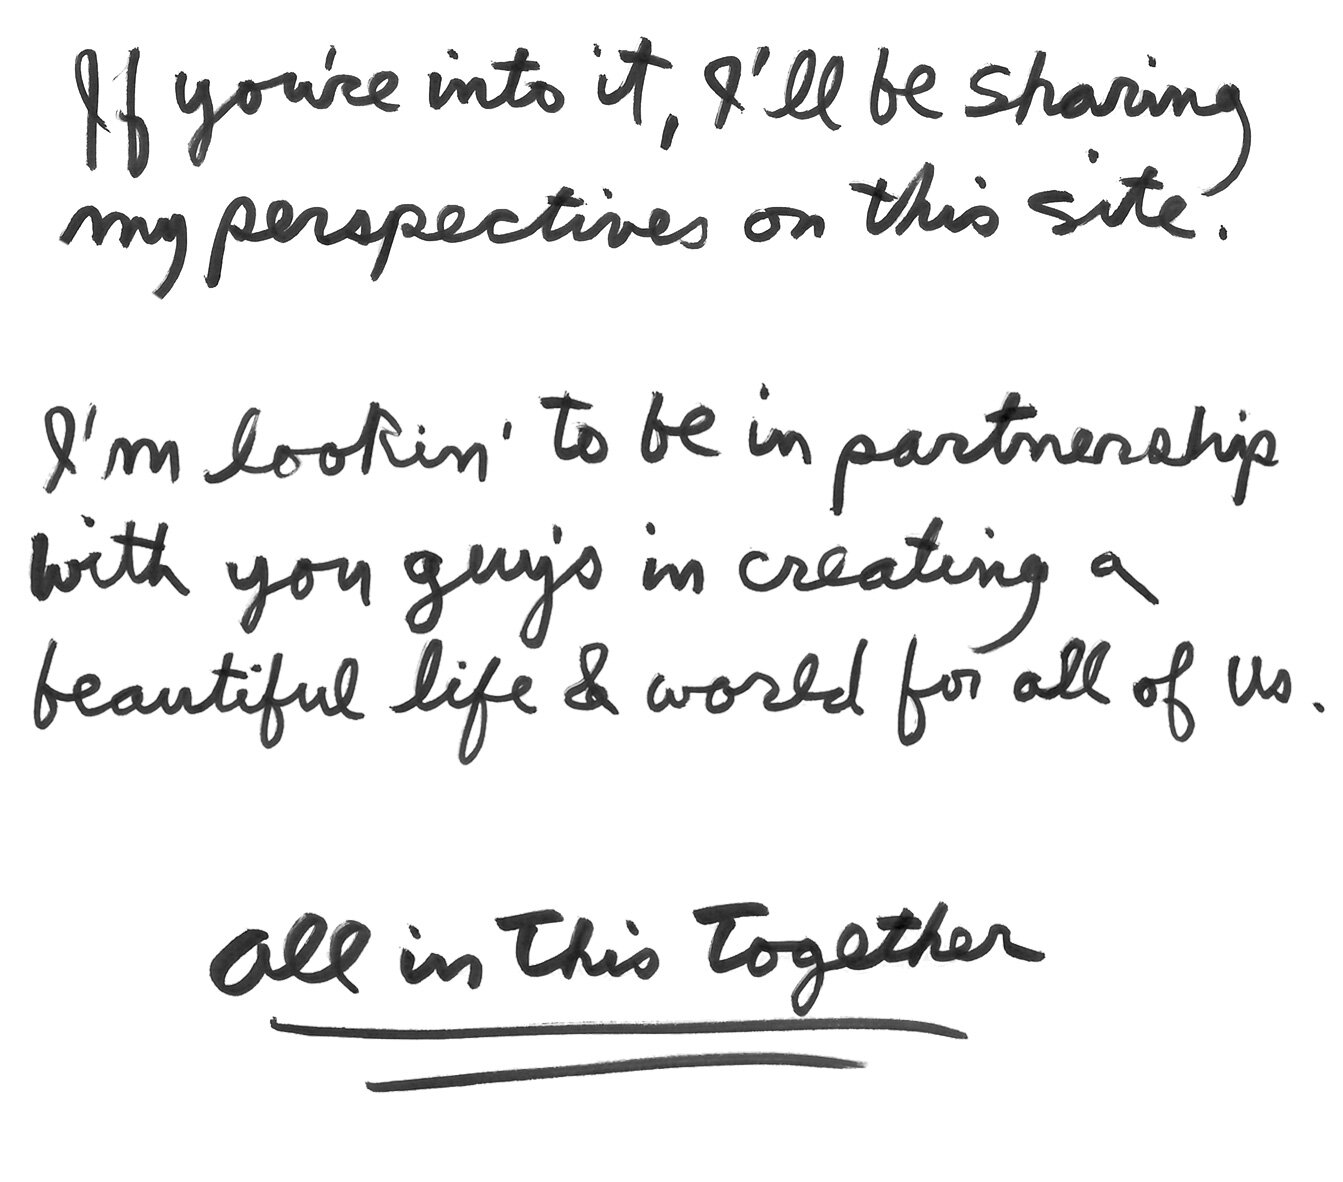 If you're into it, I'll be sharing
my perspectives on this site.
I'm lookin' to be in partnership
with you guys in creating a
beautiful life & world for all of us.
All in This Together